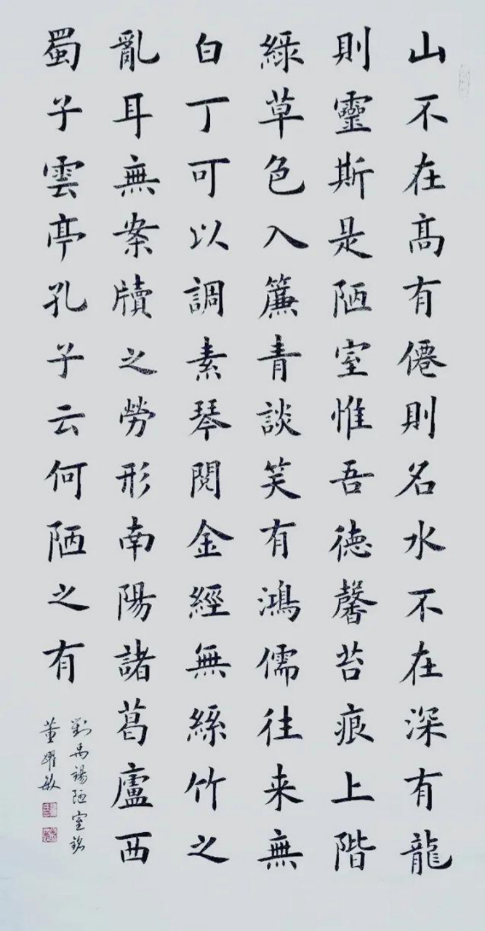 山不在高有僊則名水不在深有龍
則靈斯是陋室惟吾德馨苔痕上階
綠草色入簾青談笑有鴻儒往来無
白丁可以調素琴閱金經無絲竹之
亂耳無案牘之勞形南陽諸葛廬西
蜀子雲亭孔子云何陋之有
劉禹錫陋室銘
董耀敏